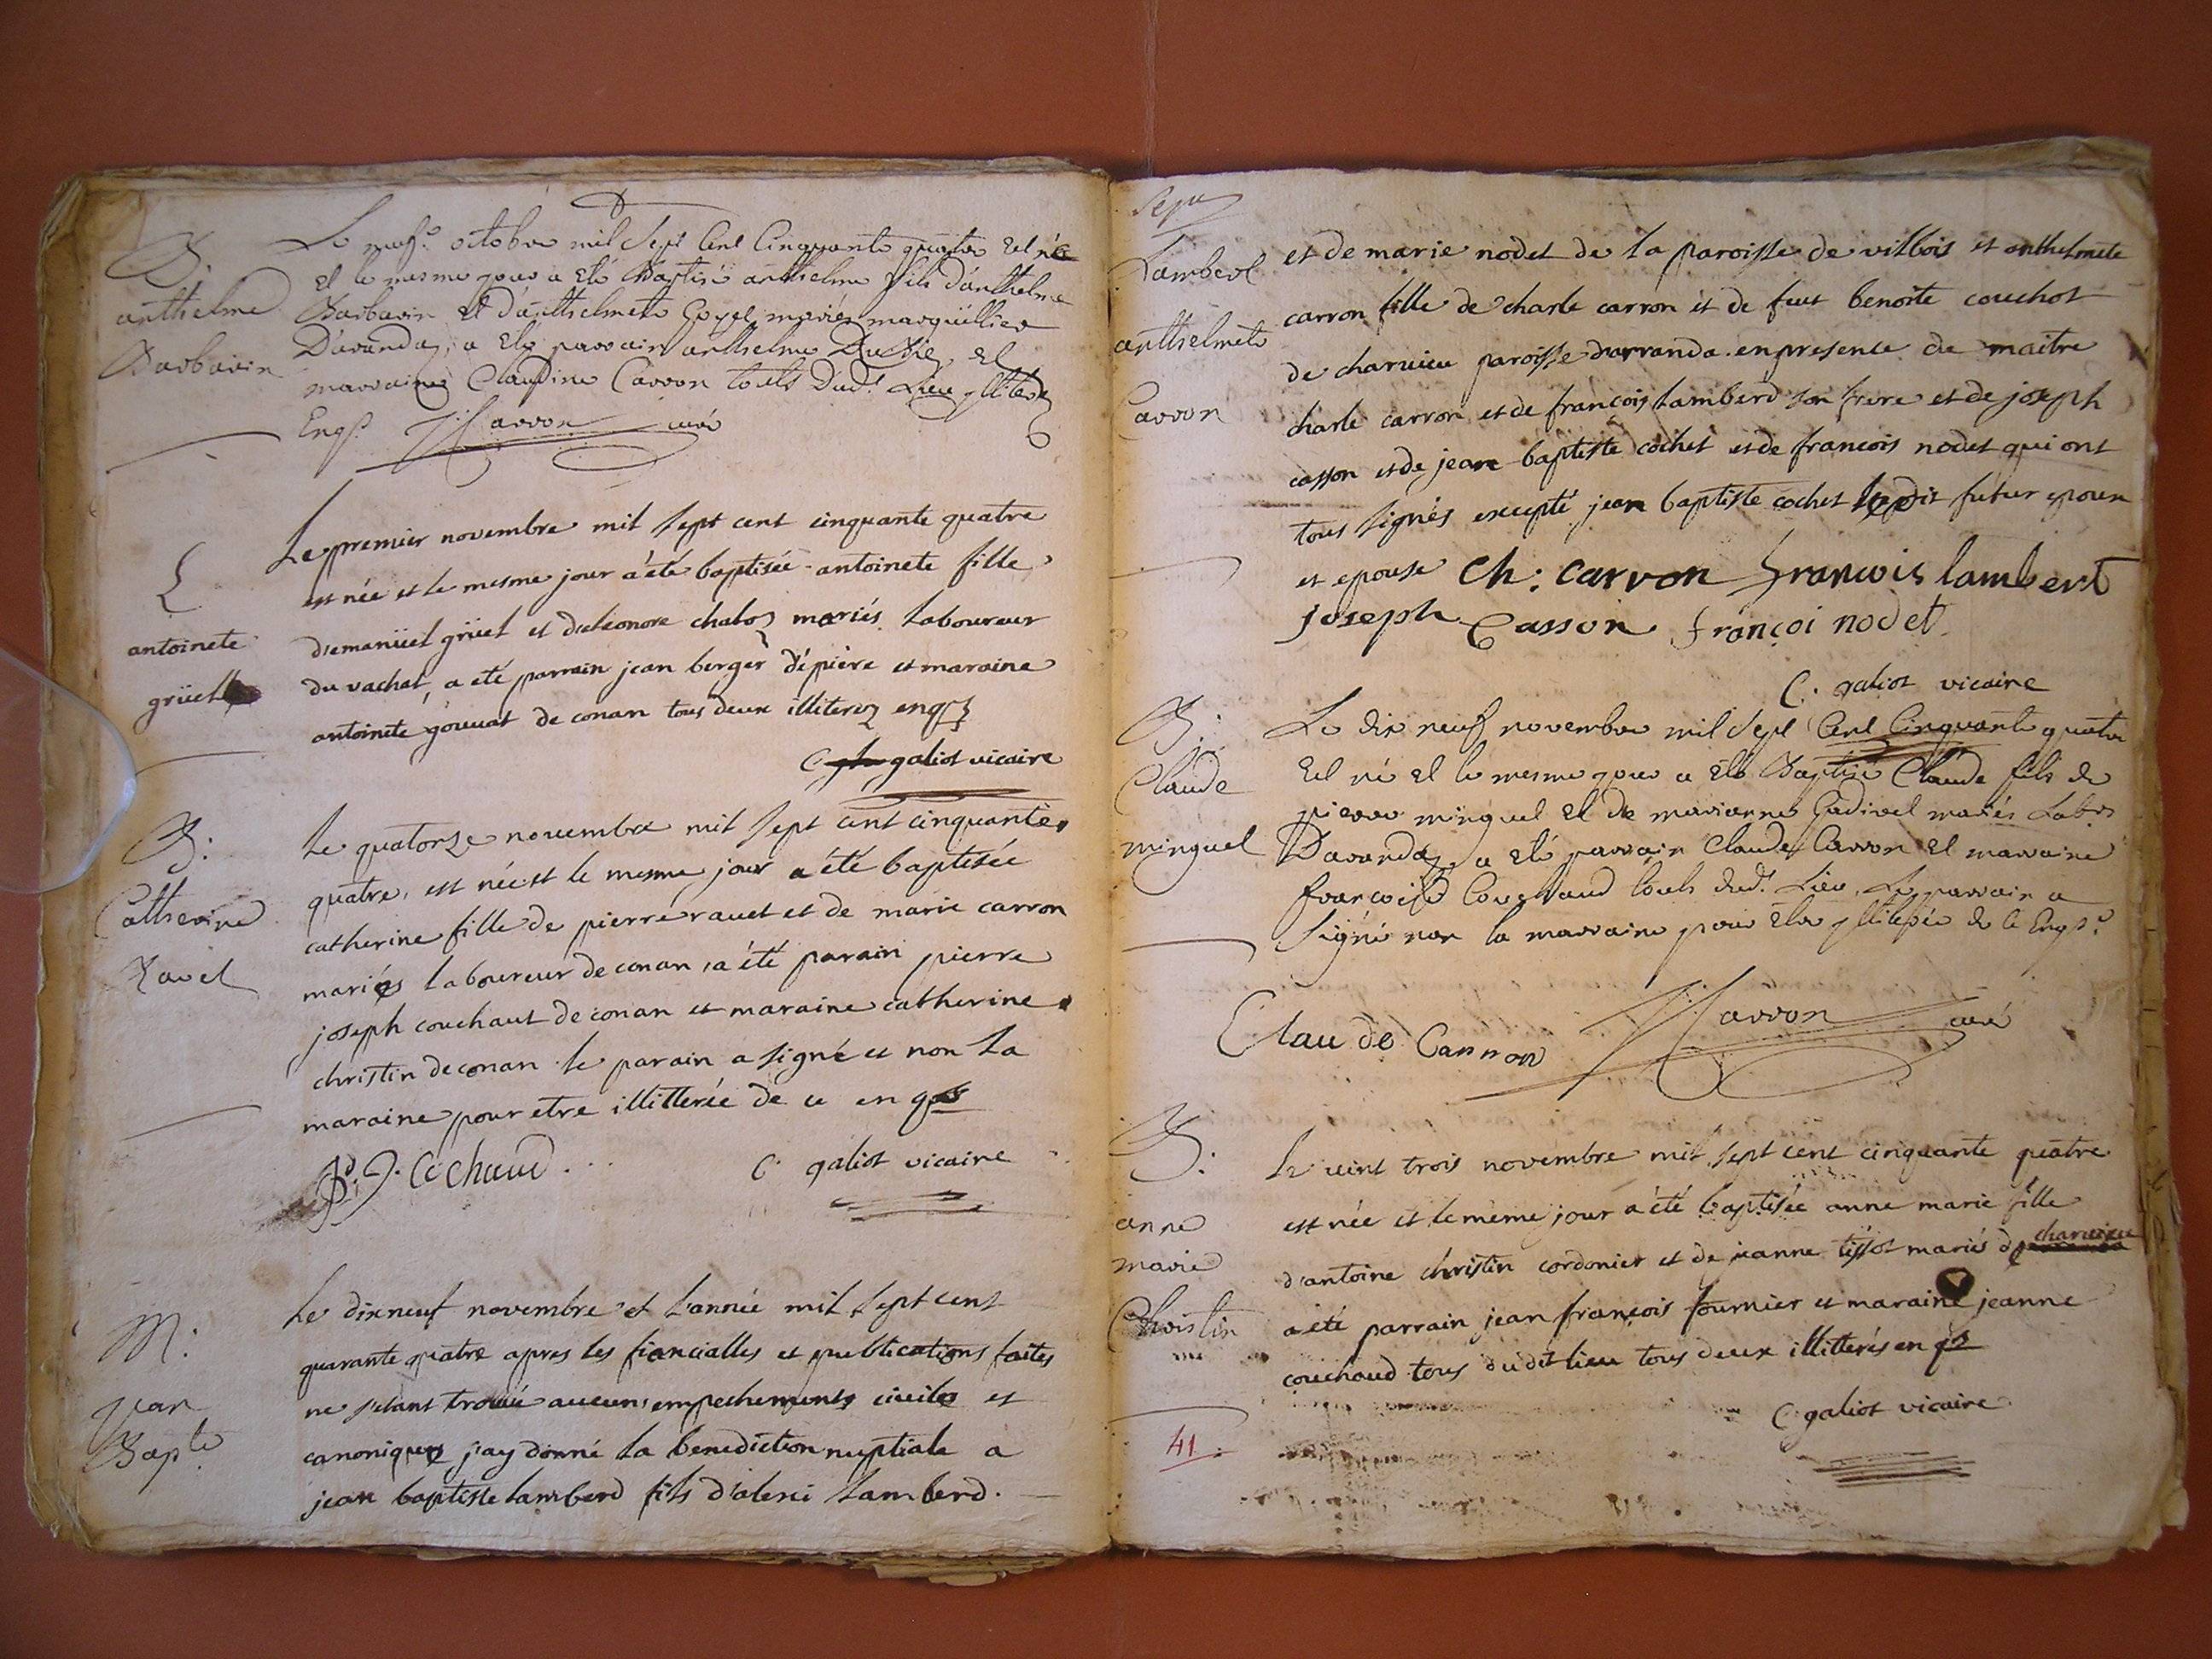 B.
anthelme
Barbarin
Le neuf.e octobre mil sept Cent Cinquante quatre Est né
Et le mesme jour a Eté Baptisé anthelme fils d'anthelme
Barbarin Et d'anthelmete mariés marguillier
D'arandaz, a Eté parrain anthelme Et
marraine Claudine Carron touts Dud.t Lieu
Enq.s Carron curé
antoinete
grüet
Le premier novembre mil sept cent cinquante quatre
est née et le mesme jour a été baptisée antoinete fille
d'emanüel grüet et d'eleonore chaboz mariés laboureur
du vachat, a eté parrain jean berger d'épière et maraine
antoinete gouuat de conan tous deux illiterez enqs
C galiot vicaire
B:
Catherine
Ravet
Le quatorze novembre mil sept cent cinquante
quatre, est née et le mesme jour a été baptisée
catherine fille de pierre rauet et de marie carron
mariés laboureur de conan, a été parain pierre
joseph couchaut de conan et maraine catherine
christin de conan le parain a signé et non la
maraine pour etre illitterée de ce enqs
P. J. Cochaud
C. galiot vicaire
M:
jean
Bap.te
Le dixneuf novembre et l'année mil sept cent
quarante quatre apres les fiancialles et publications faites
ne s'etant trouué aucun empechements civils et
canoniques j'ay donné la benediction nuptiale a
jean baptiste lamberd fils d'alexi lamberd.
Lambert
anthelmete
Carron
et de marie nodet de la paroisse de villbois et anthelmete
carron fille de charle carron et de feue benoite couchot
de charuieu paroisse d'arranda. en presence de maitre
charle carron et de françois lamberd son frere et de joseph
casson et de jean baptiste cochet et de francois nodet qui ont
tous signés excepté jean baptiste cochet ledit futur epoux
et epouse Ch: carron francois lambert
joseph Casson françoi nodet
C. galiot vicaire
B:
Claude
minguet
Le dix neuf novembre mil sept Cent Cinquante quatre
Est né Et le mesme jour a Eté Baptisé Claude fils de
pierre minguet Et de marianne Gadivel mariés Lab.rs
D'arandaz, a Eté parrain Claude Carron Et marraine
françoise Couchaud touts dud.t Lieu, Le parrain a
signé non la marraine pour Etre de Ce Enqs.e
Claude Carron
Carron curé
B:
anne
marie
Christin
le vint trois novembre mil sept cent cinquante quatre
est née et le même jour a été baptisée anne marie fille
d'antoine christin cordonier et de jeanne tissot mariés de charvieu
a été parrain jean françois fournier et maraine jeanne
couchoud tous dudit lieu tous deux illitterés enqs
C galiot vicaire
41.